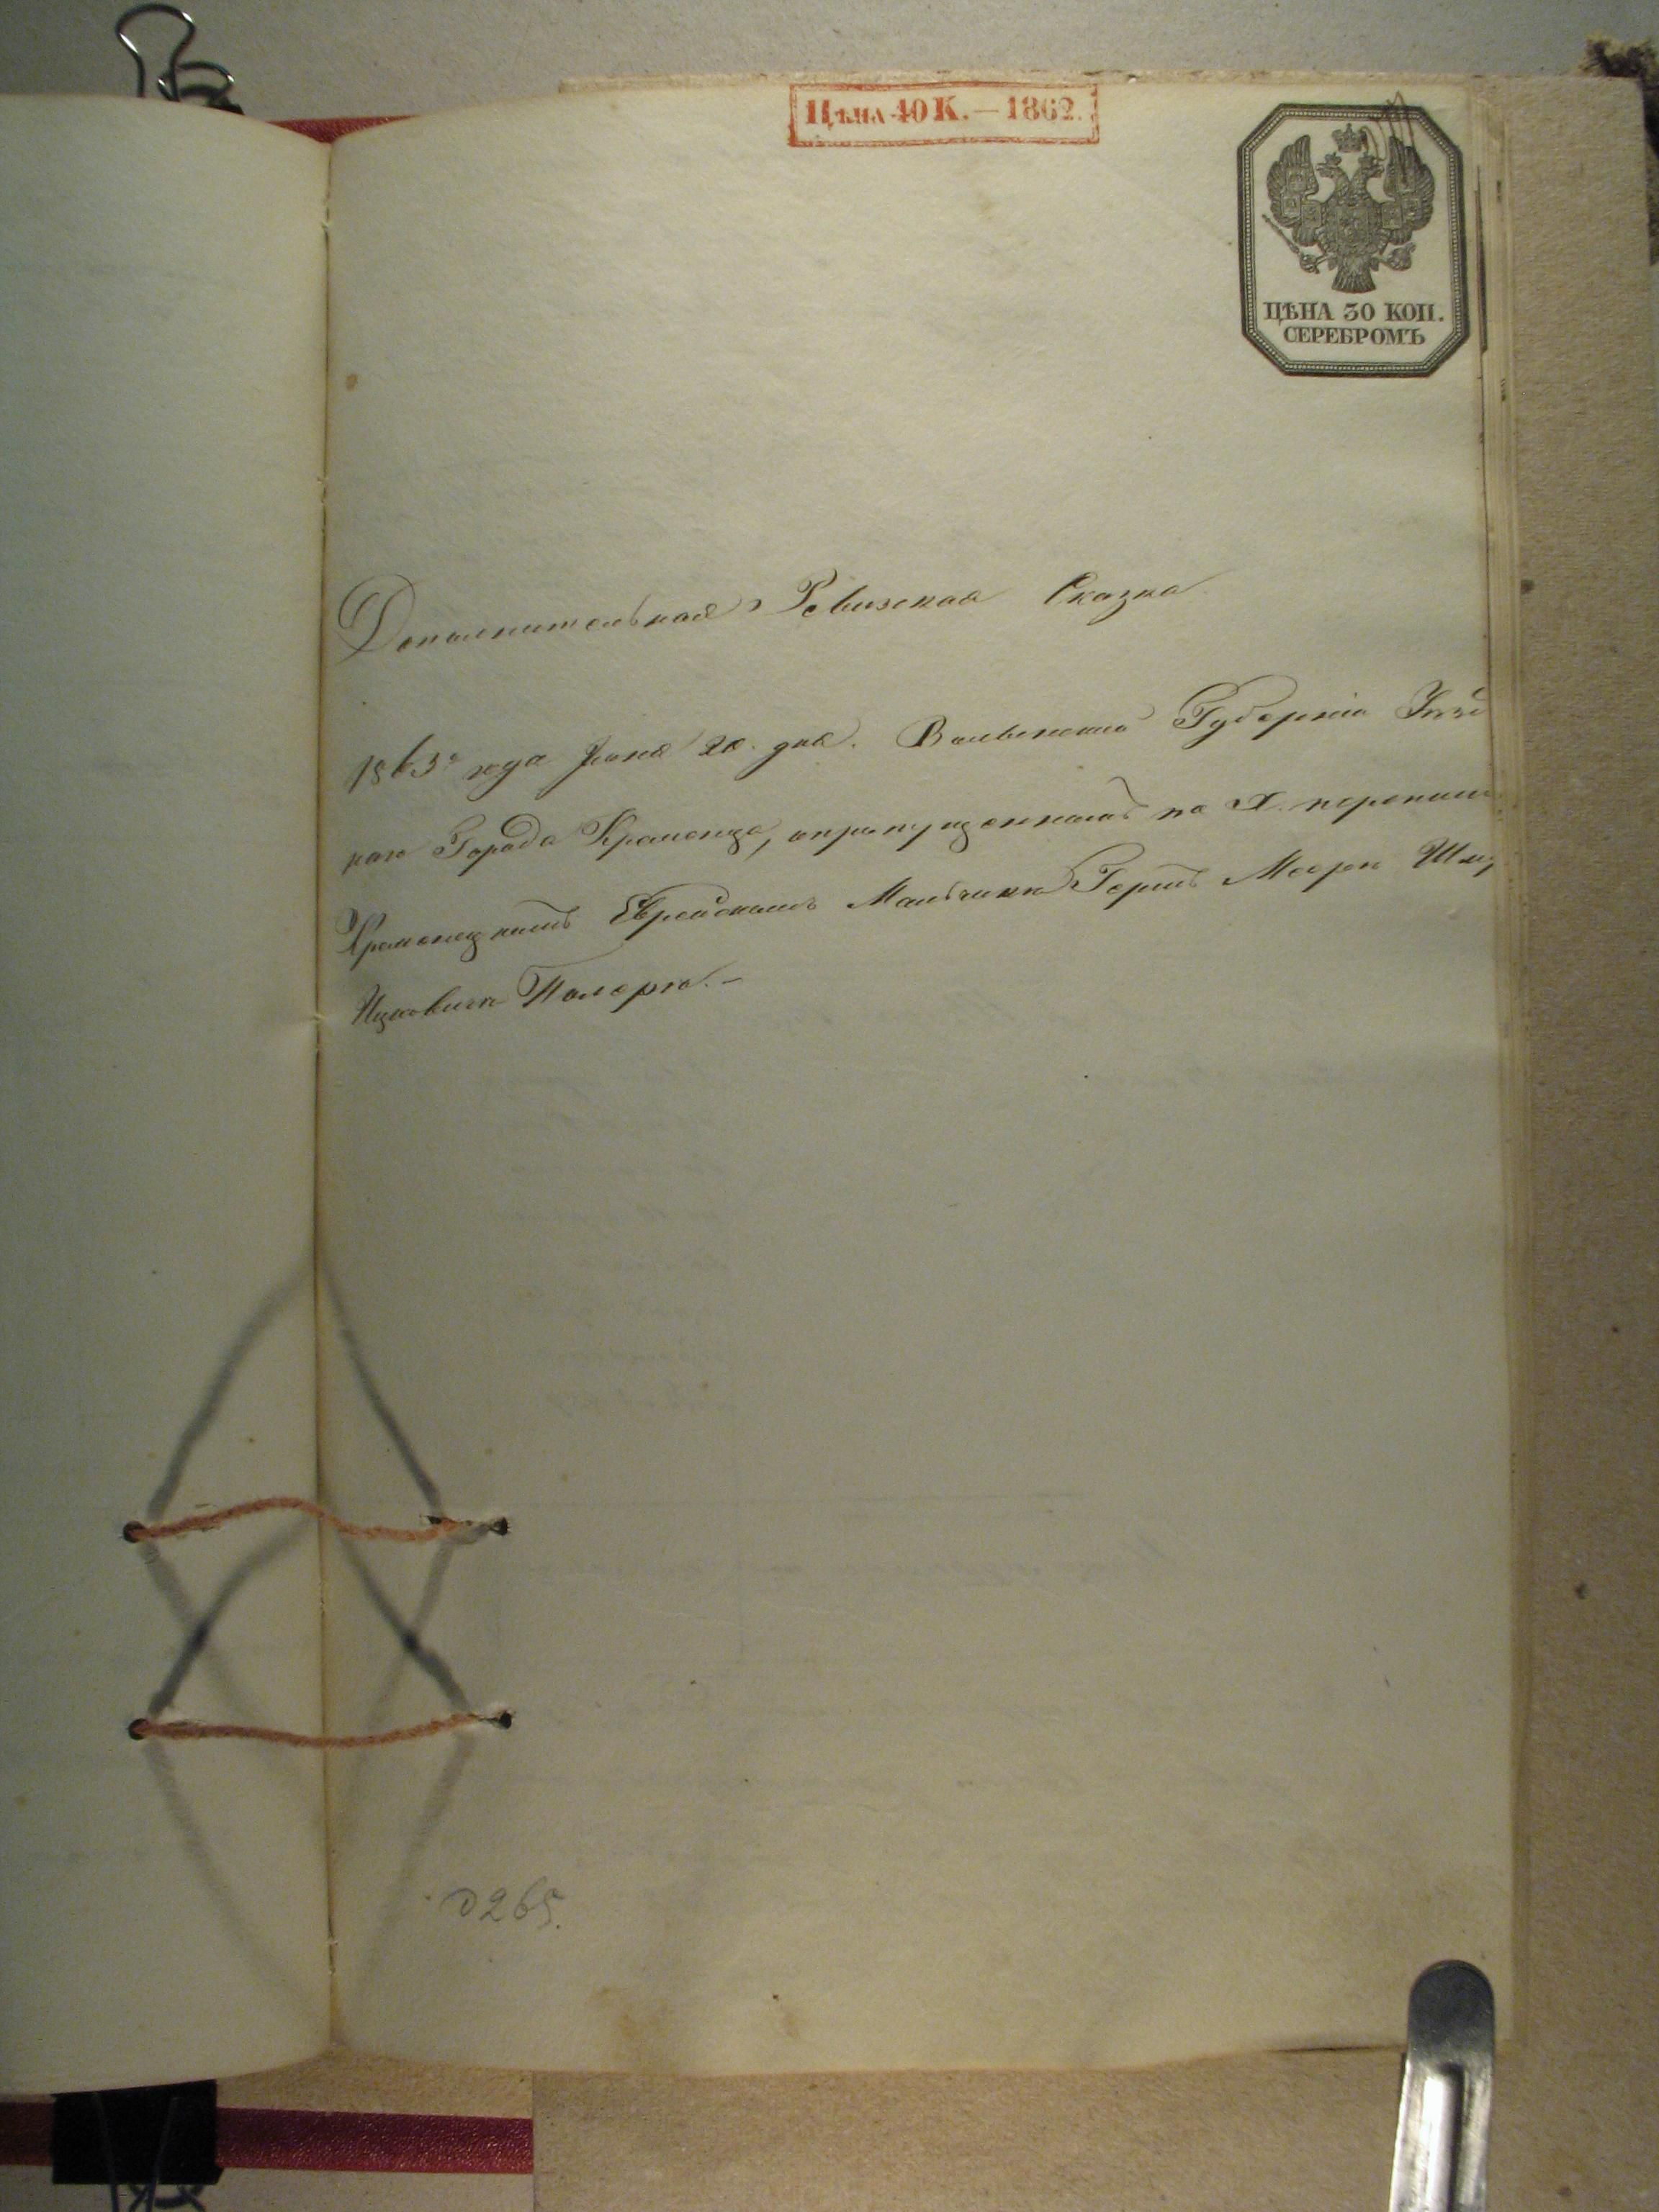 Цѣна 40 К. — 1862.
ЦѢНА 30 КОП.
СЕРЕБРОМЪ
Дополнительная Ревизская Сказка
1863го года Іюня 20. дня. Волынской Губерніи Уѣзд
наго Города Кременца, о пропущенномъ по X. переписи
Кременецкимъ Еврейскимъ Мальчикѣ Гершъ Меери
Ицковичѣ
265.